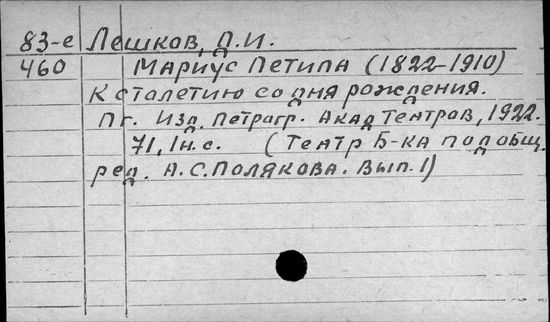 83-е Лешков, Д.И.
460 Мариус Петипа (1822-1910)
К столетию со дня рождения.
Пг. Изд. Петрогр. Акад Театров, 1922.
71, 1 н.с. (Театр Б-ка под общ.
ред. А.С.Полякова. Вып. 1)